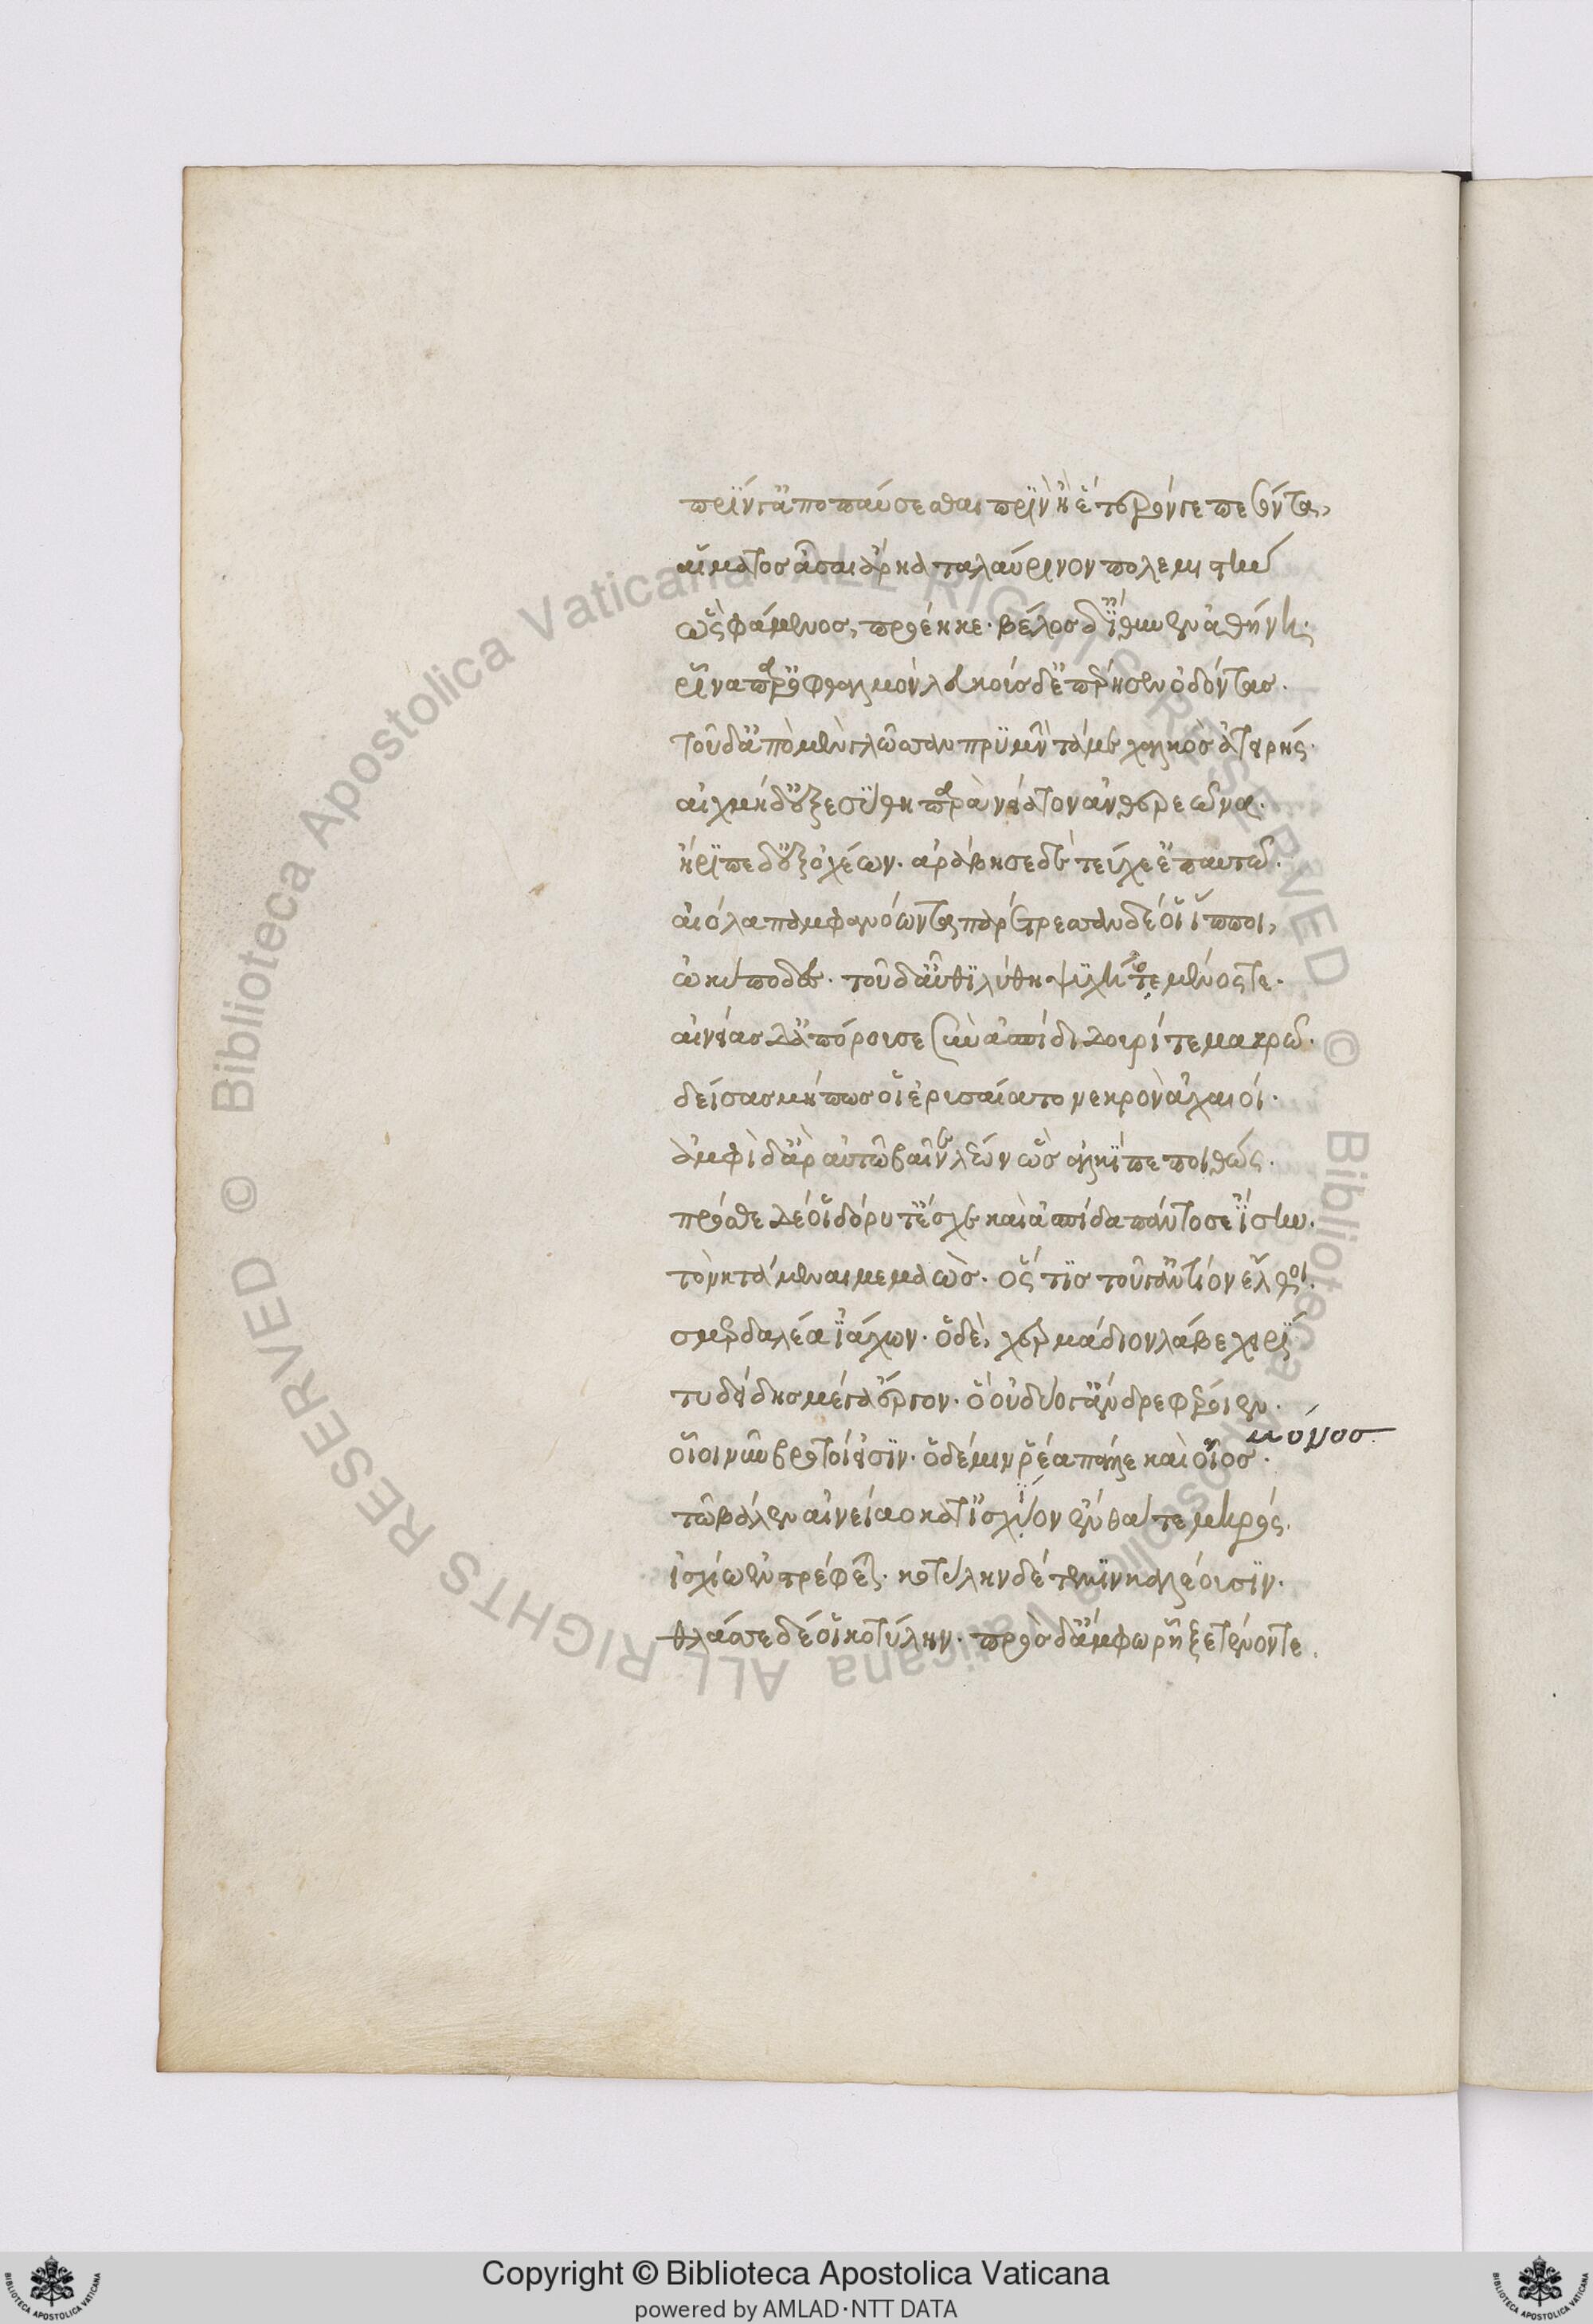 πρίν γ' ἀποπαύσεσθαι πρὶν ἢ ἕτερόν γε πεσόντα,
αἵματος ἆσαι ἄρηα ταλαύρινον πολεμιστήν
ὣς φάμενος, προέηκε· βέλος δ' ἴθυνεν ἀθήνη·
ῥῖνα παρ' ὀφθαλμόν λευκοὺς δ' ἐπέρησεν ὀδόντας·
τοῦ δ' ἀπὸ μὲν γλῶσσαν πρυμνὴν τάμε χαλκὸς ἀτειρής·
αἰχμὴ δ' ἐξεσύθη παρὰ νείατον ἀνθερεῶνα·
ἤριπε δ' ἐξ ὀχέων· ἀράβησε δὲ τεύχε' ἐπ' αυτῶ·
αἰόλα παμφανόωντα παρέτρεσσαν δέ οἱ ἵπποι,
ὠκύποδες· τοῦ δ' αὖθι λύθη ψυχή τε μένος τε·
αἰνείας δ' ἀπόρουσε σὺν ἀσπίδι δουρί τε μακρῶ·
δείσας μή πώς οἱ ἐρυσαίατο νεκρὸν ἀχαιοί·
ἀμφὶ δ' ἄρ' αὐτῶ βαῖνε λέων ὣς ἀλκὶ πεποιθώς·
πρόσθε δέ οἱ δόρυ τ' ἔσχε καὶ ἀσπίδα πάντοσε ἴσην·
τὸν κτάμεναι μεμαὼς· ὅς τις τοῦ γ' ἀντίον ἔλθοι·
σμερδαλέα ἰάχων· ὁ δὲ χερμάδιον λάβε χειρί
τυδείδης μέγα ἔργον· ὃ οὐ δύο γ' ἄνδρε φέροιεν·
μόνος
οἷοι νῦν βροτοί εἰσίν· ὁ δέ μιν ῥέα πάλλε καὶ οἶος·
τῶ βάλεν αἰνείαο κατ' ἰσχίον ἔνθα τε μηρός·
ἰσχίω ἐνστρέφεται· κοτύλην δέ τέ μιν καλέουσιν·
θλάσσε δέ οἱ κοτύλην· πρὸς δ' ἄμφω ῥῆξε τένοντε·
Copyright © Biblioteca Apostolica Vaticana
powered by AMLAD·NTT DATA